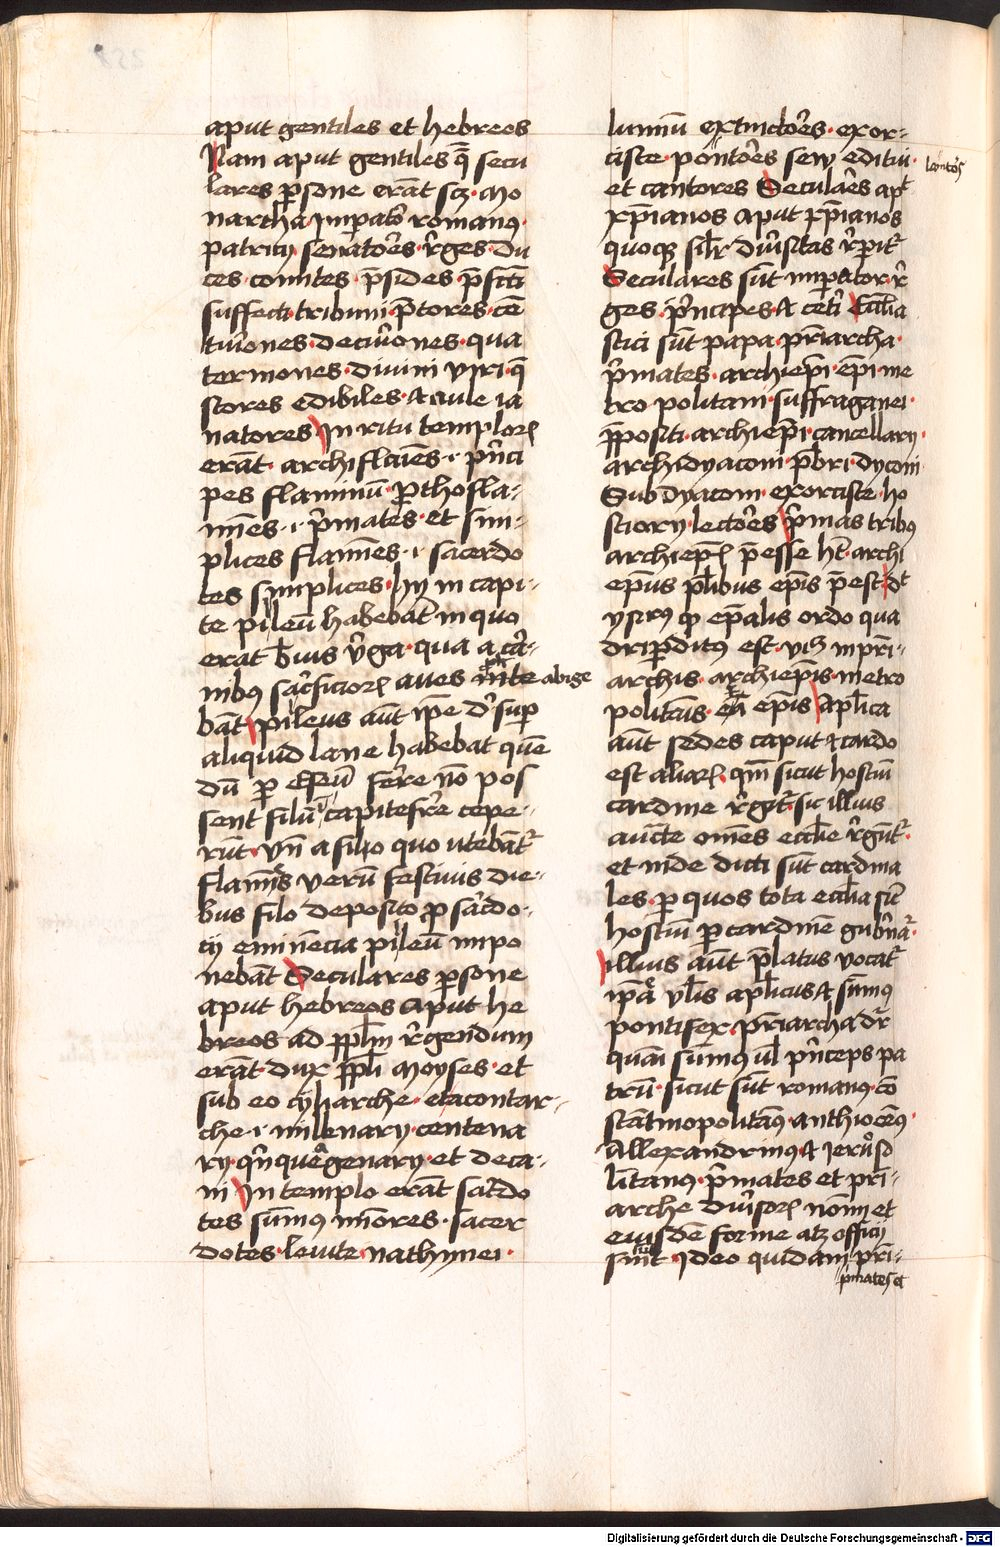 aput gentiles et hebreos
Nam aput gentiles q̄ secu
lares ꝑsone erāt scꝫ · mo
narcha · imꝑator romanus ·
patricij senatores · reges · du
ces · comites · p̄sides · p̄fecti
suffecti · tribuni · p̄tores · cē
turiones · decuriones · qua
terniones · diuini viri · q̄
stores edibiles · et aule ia
natores In ritu temploꝝ
erāt · archiflamēs · i · prīci
pes flaminū · ꝓthofla-
mēs · i · p̄mates · et sim-
plices flamēs · i · sacerdo
tes simplices · hij in capi-
te pileū habebāt in quo
erat breuis v̄ga · qua a car-
nibus sacrificioꝝ aues abige
bāt pileus aūt ip̄e desuper
aliquid lane habebat quē
dū ꝑ estū ferre nō pos
sent filū capite ferre cepe-
rūt · vn̄ a filo quo utebāt
flamines verū festiuis die-
bus filo deposito ꝓ sacerdo-
cij eminēcia pileū impo
nebāt Seculares ꝑsone
aput hebreos aput he
breos ad ppl̄m regendum
erāt · dux ppl̄i moyses · et
sub eo cyliarche · etacontar-
che · i · millenarij · centena
rij · qn̄quagenarij · et deca-
ni In templo erāt sacerdo
tes sūmus minores · sacer
dotes · leuite nathinei ·
luminū extinctores · exor-
ciste · seu editui · lectores
et cantores Seculares apt
xp̄ianos aput xp̄ianos
quoqꝫ sil̄r diuersitas reperit
Seculares sūt imꝑator · re
ges · prīcipes · et ceteri Eccl̄ia
stici sūt papa · pr̄iarcha ·
p̄mates · archiep̄i · ep̄i · me
tropolitani · suffraganei ·
p̄positi · archiep̄i · cancellarij ·
archidyaconi · pr̄bri · dyconi
Subdyaconi · exorciste · ho
stiarij · lectores p̄mas tribus
archiep̄is p̄esse ht̄ · archi
ep̄us pl̄ibus ep̄is p̄est · dt
ysirus ep̄alis ordo qua
driꝑditus est · vicꝫ in pr̄i-
archis · archiep̄is · metro
politanis · et ep̄is Apl̄ica
aūt sedes caput et cardo
est aliaꝝ · qm̄ sicut hostiū
cardine regit · sic illius
auctē omēs eccl̄ie regūt ·
et inde dicti sūt cardina
les · ꝑ quos tota eccl̄ia sic
hostiū ꝑ cardinē gubnat ·
illius aūt p̄latus vocat
papa vl̄is apl̄icus et sūmus
pontifex · pr̄iarcha dr̄
quasi sūmus ul̄ prīceps pa
trū · sicut sūt romanus · cō
stātinopolitanus · anthiocenus ·
Allexandrinus et Jeruso
l̄itanus · p̄mates et pri-
arche diuersoꝝ nom̄i et
eiusdē forme atqꝫ officij
sunt · Ideo quidam pr̄i-
p̄mates et
Digitalisierung gefördert durch die Deutsche Forschungsgemeinschaft - DFG